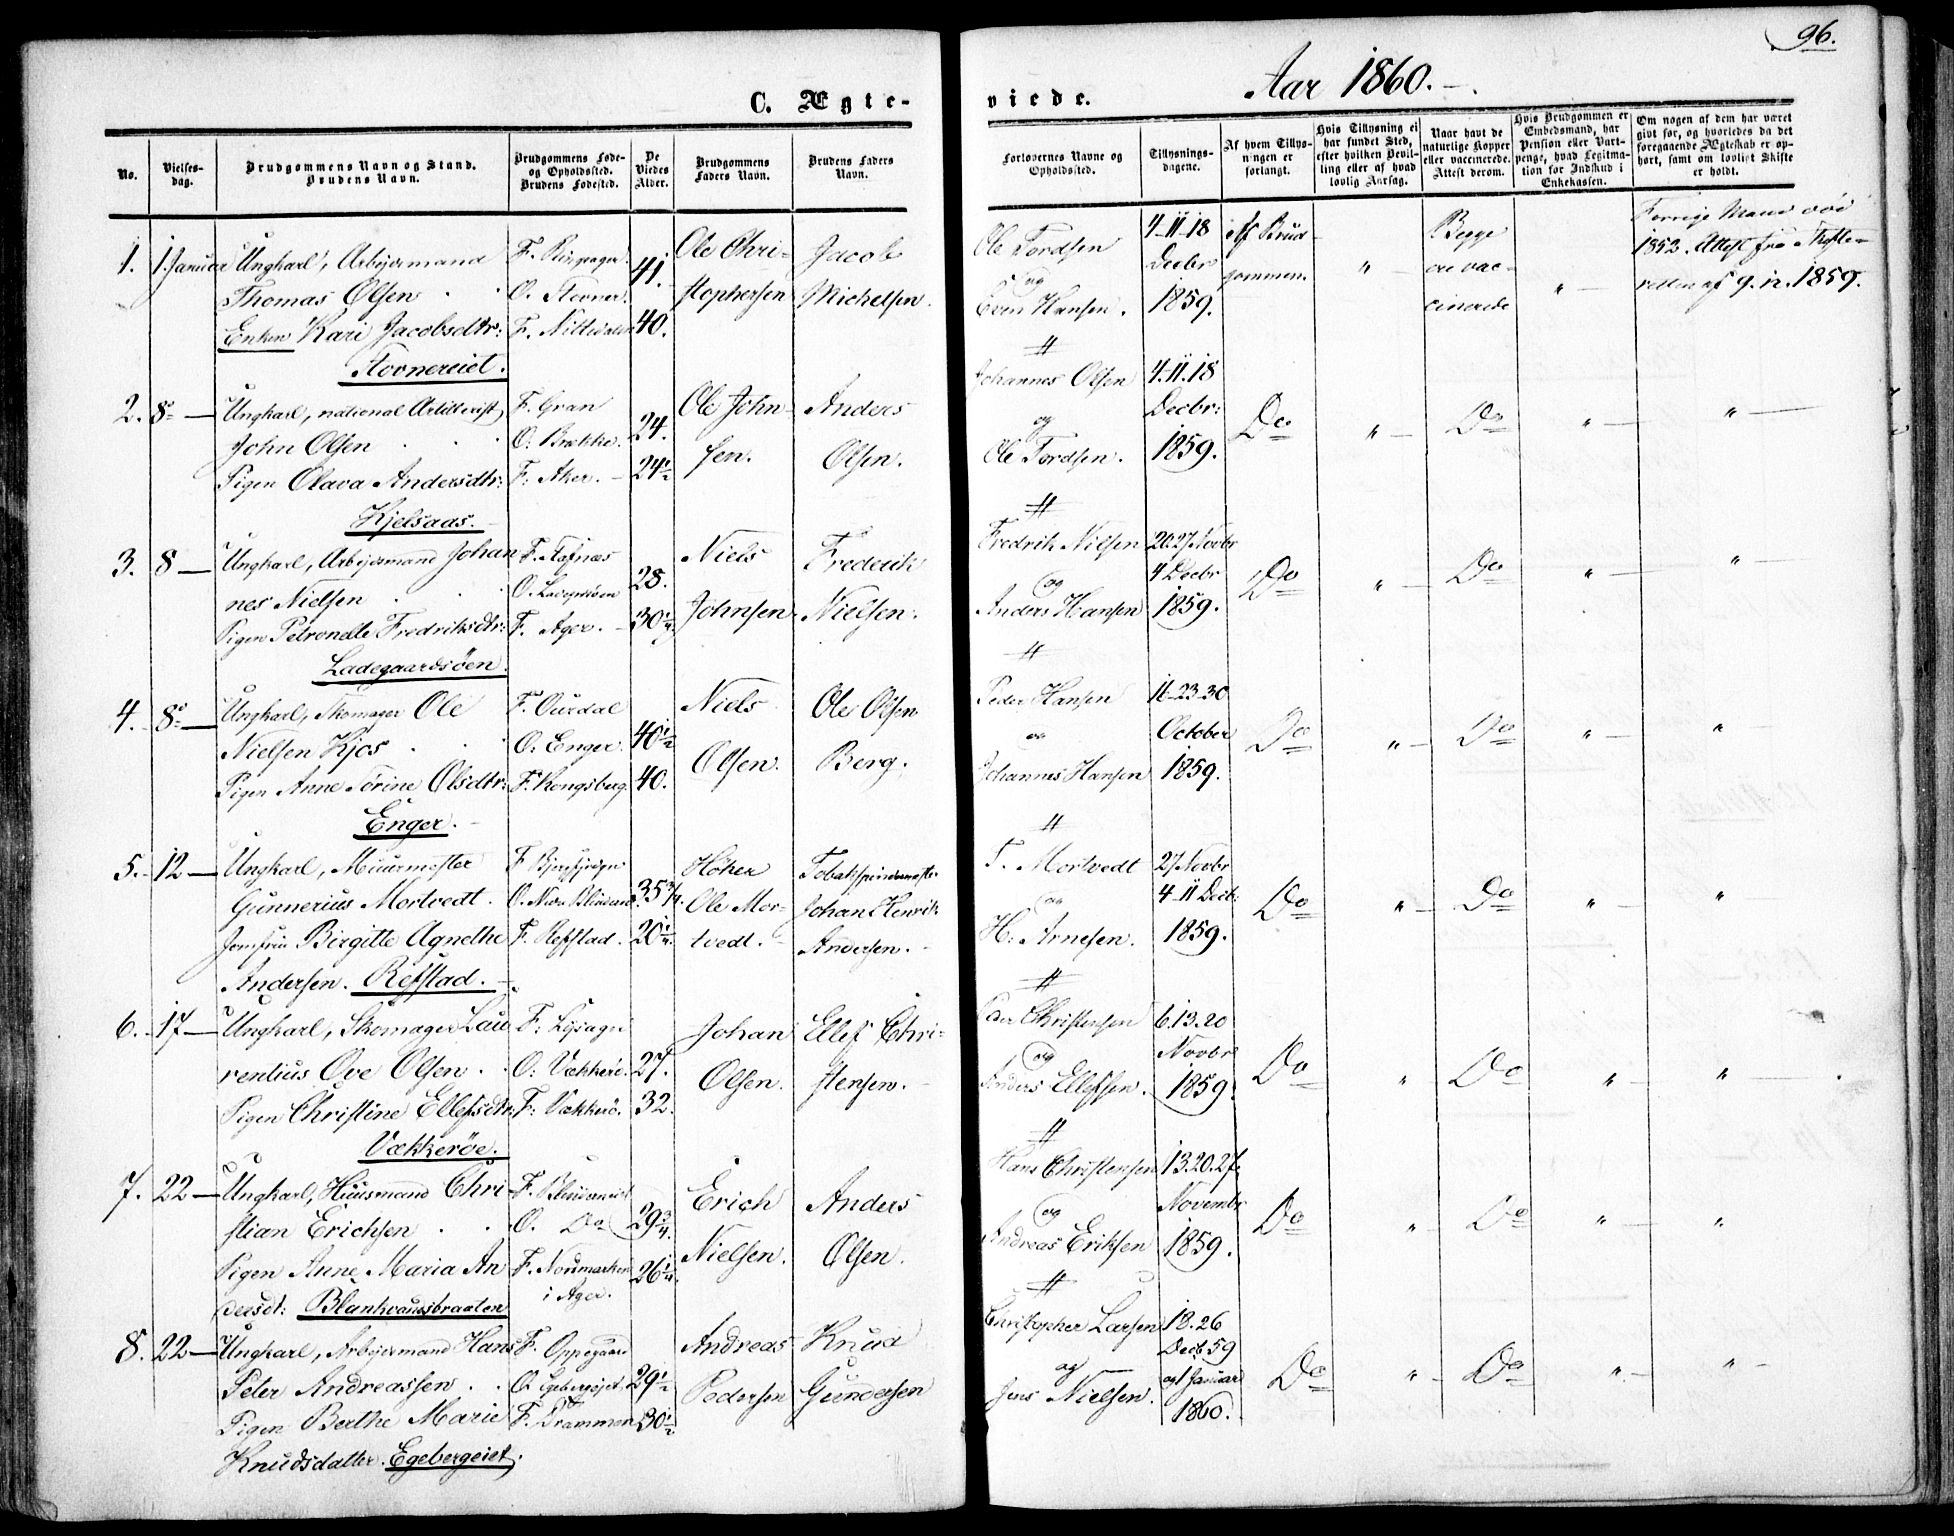 96.
C. Ægte-
viede.
Aar 1860.
No.
Vielses-
dag.
Brudgommens Navn og Stand.
Brudens Navn.
Brudgommens Føde-
og Opholdssted.
Brudens Fødested.
De
Viedes
Alder.
Brudgommens
Faders Navn.
Brudens Faders
Navn.
Forlovernes Navne og
Opholdssted.
Tillysnings-
dagene.
Af hvem Tillys-
ningen er
forlangt.
Hvis Tillysning ei
har fundet Sted,
efter hvilken Bevil-
ling eller af hvad
lovlig Aarsag.
Naar havt de
naturlige Kopper
eller vaccinerede.
Attest derom.
Hvis Brudgommen er
Embedsmand, har
Pension eller Vart-
penge, hvad Legitima-
tion for Indskud i
Enkekassen.
Om nogen af dem har været
gift før, og hvorledes da det
foregaaende Ægteskab er op-
hørt, samt om lovligt Skifte
er holdt.
1. 1. Januar Ungkarl, Arbejdsmand
Thomas Olsen
Enken Kari Jacobsdtr:
Stovnereiet.
F.
O. Stovner.
F. Nittedalen
41.
40.
Ole Chri-
stophersen
Jacob
Michelsen.
Ole Tordsen
og
Even Hansen.
4-11-18
Decbr
1859.
Af Brud-
gommen.
"
Begge
ere vac-
cinerede
"
Forrige Mand død
1852. Attest fra Skifte-
retten af 9.12.1859.
2. 8 — Ungkarl, national Artillerist
John Olsen
Pigen Olava Andersdtr:
Kjelsaas.
F. Gran
O. Brekke.
F. Aker.
24.
24½
Ole John-
sen.
Anders
Olsen.
Johannes Olsen
og
Ole Tordsen.
4.11.18
Decbr:
1859.
Do
"
Do
"
"
3. 8 — Ungkarl, Arbejdsmand Johan
nes Nielsen
Pigen Petronelle Fredriksdtr:
Ladegaardsøen.
F.
O. Ladegrdsøen
F. Ager.
28.
30¼
Niels
Johnsen
Frederik
Nielsen.
Fredrik Nilsen
og
Anders Hansen
20.27 Novbr
4 Decbr
1859.
Do
"
Do
"
"
4. 8 — Ungkarl, Skomager Ole
Nielsen Kjos
Pigen Anne Torine Olsdtr:
Enger.
F. Ourdal
O. Enger.
F. Kongsberg.
40½
40.
Niels
Olsen.
Ole Olsen
Berg.
Peder Hansen
og
Johannes Hansen
16-23-30
October
1859.
Do
"
Do
"
"
5. 12 — Ungkarl, Muurmester
Gunnerius Mortvedt.
Jomfru Birgitte Agnethe
Andersen. Refstad.
F.
O. Nedre Blindern
F. Refstad.
35¾
20¼
Høker
Ole Mor-
tvedt.
Tobakspindemester
Johan Henrik
Andersen.
T. Mortvedt
og
H. Arnesen.
27 Novbr
4-11 Decb:
1859.
Do
"
Do
"
"
6. 17 — Ungkarl, Skomager Lau
rentius Ove Olsen
Pigen Christine Ellefsdtr.
Vækkerøe.
F.
O: Vækkerö.
F: Vækkerö.
27.
32.
Johan
Olsen.
Ellef Chri-
stensen.
Peder Christensen
og
Anders Ellefsen.
6.13.20
Novbr
1859.
Do
"
Do
"
"
7. 22 — Ungkarl, Huusmand Chri-
stian Erichsen
Pigen Anne Maria An
dersdt: Blankvandsbraaten
F.
O. Do
F. Nordmarken
i Ager.
29¾
26¼
Erich
Nielsen.
Anders
Olsen.
Hans Christensen
og
Andreas Eriksen
13.20.27.
Novembr
1859.
Do
"
Do
"
"
8. 22 — Ungkarl, Arbejdsmand Hans
Peter Andreassen
Pigen Berthe Marie
Knudsdatter. Egebergeiet.
F. Oppegaard
O. Egebergejet
F. Drammen
29½
30½
Andreas
Pedersen
Knud
Gundersen
Christopher Larsen
og
Jens Nielsen.
18.26
Decb. 59
og 1 Januar
1860.
Do
"
Do
"
"